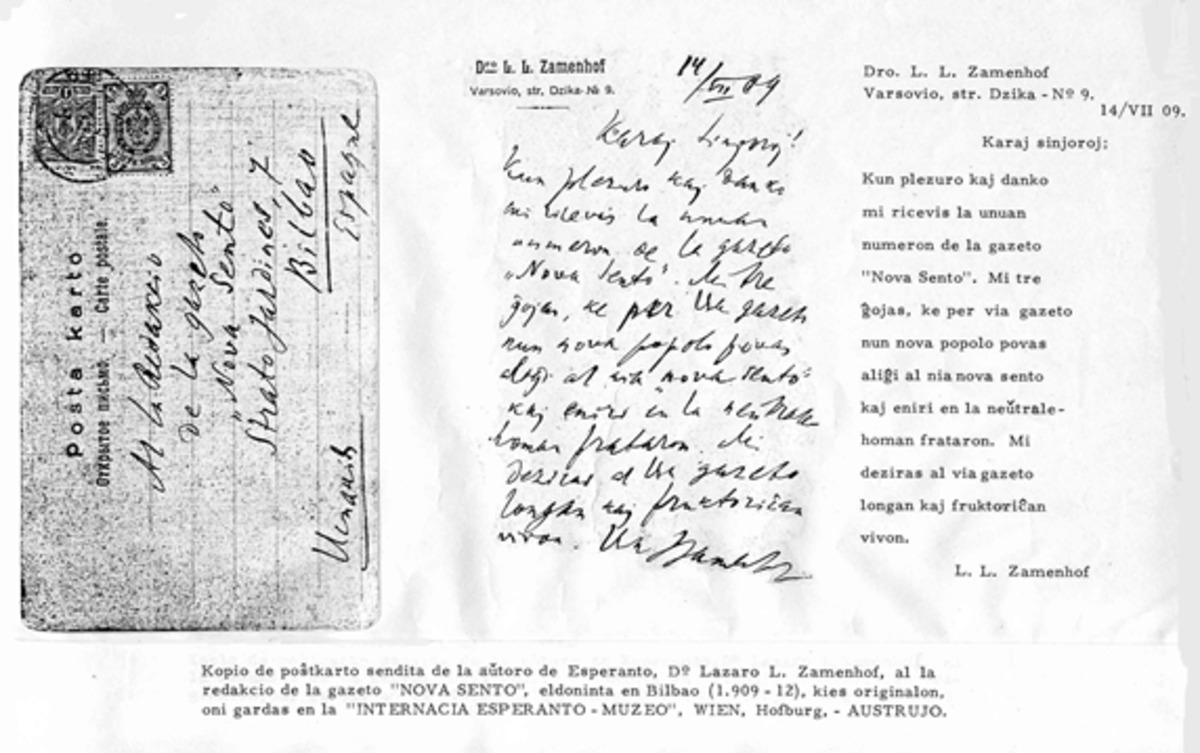 Posta karto
Открытое письмо. — Carte postale.
Al la Redakcio
de la gazeto
"Nova Sento"
Strato Jardines, 7
Bilbao
Espagne
Dro L. L. Zamenhof
Varsovio, str. Dzika № 9.
14/VII 09
Karaj Sinjoroj!
Kun plezuro kaj danko
mi ricevis la unuan
numeron de la gazeto
„Nova Sento". Mi tre
ĝojas, ke per Via gazeto
nun nova popolo povas
aliĝi al nia „nova sento"
kaj eniri en la neŭtrale
homan frataron. Mi
deziras al Via gazeto
longan kaj fruktoriĉan
vivon. Via Zamenhof
Dro. L. L. Zamenhof
Varsovio, str. Dzika - Nº 9.
14/VII 09.
Karaj sinjoroj;
Kun plezuro kaj danko
mi ricevis la unuan
numeron de la gazeto
"Nova Sento". Mi tre
ĝojas, ke per via gazeto
nun nova popolo povas
aliĝi al nia nova sento
kaj eniri en la neŭtrale-
homan frataron. Mi
deziras al via gazeto
longan kaj fruktoriĉan
vivon.
L. L. Zamenhof
Kopio de poŝtkarto sendita de la aŭtoro de Esperanto, Dº Lazaro L. Zamenhof, al la
redakcio de la gazeto "NOVA SENTO", eldoninta en Bilbao (1.909 - 12), kies originalon,
oni gardas en la "INTERNACIA ESPERANTO - MUZEO", WIEN, Hofburg, - AUSTRUJO.